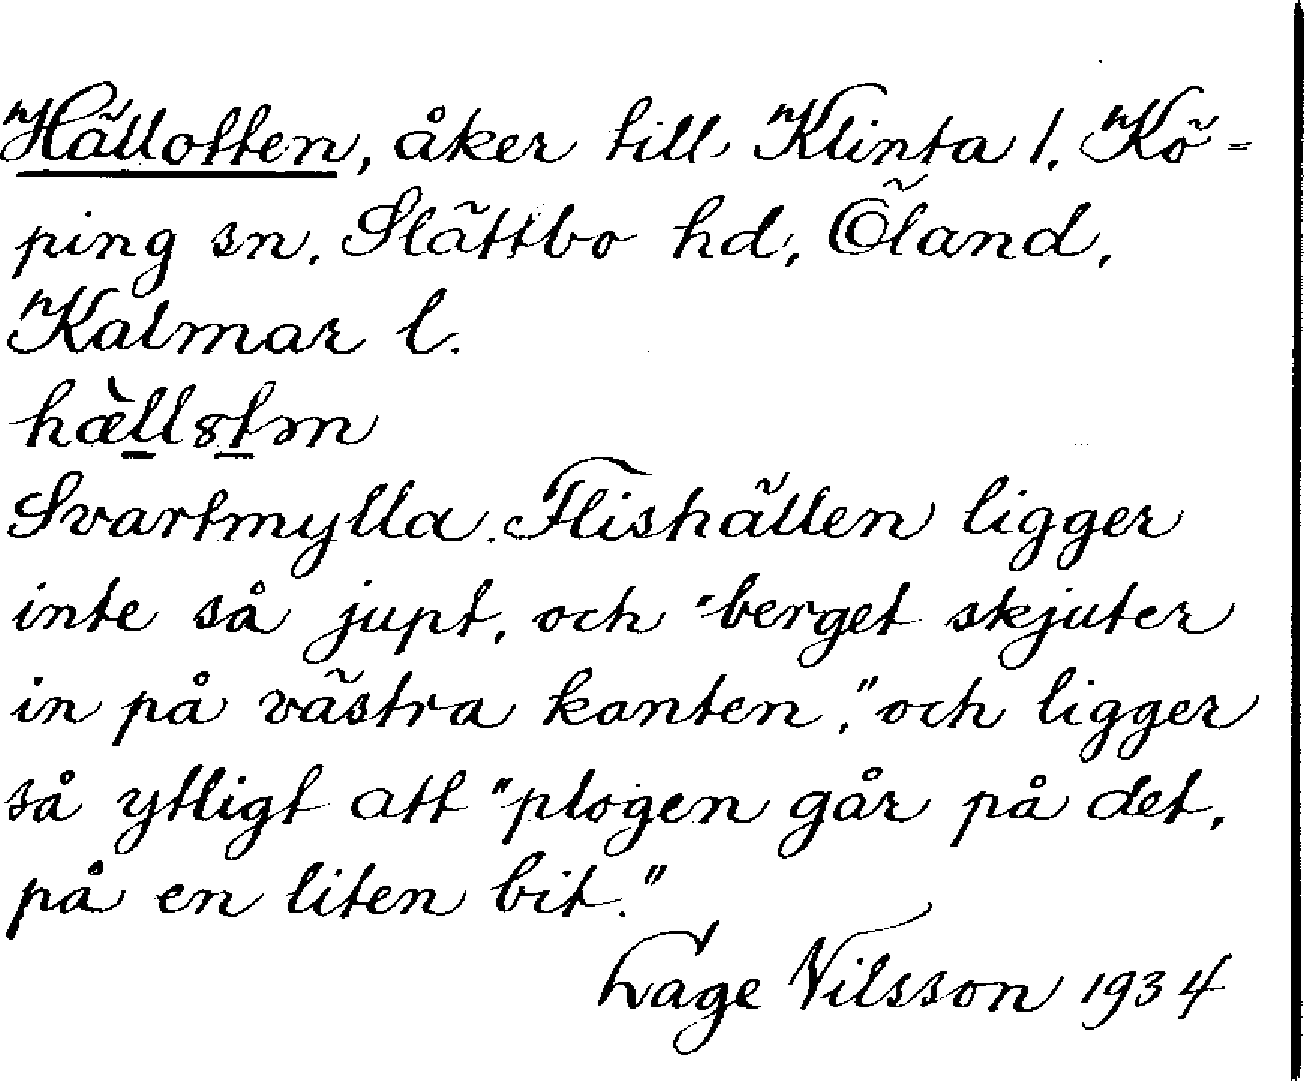 Hällotten, åker till Klinta 1. Kö-
ping sn. Slättbo hd, Öland,
Kalmar l.
Svartmylla. Flishällen ligger
inte så jupt, och "berget skjuter
in på västra kanten," och ligger
så ytligt att "plogen går på det,
på en liten bit."
Lage Nilsson 1934